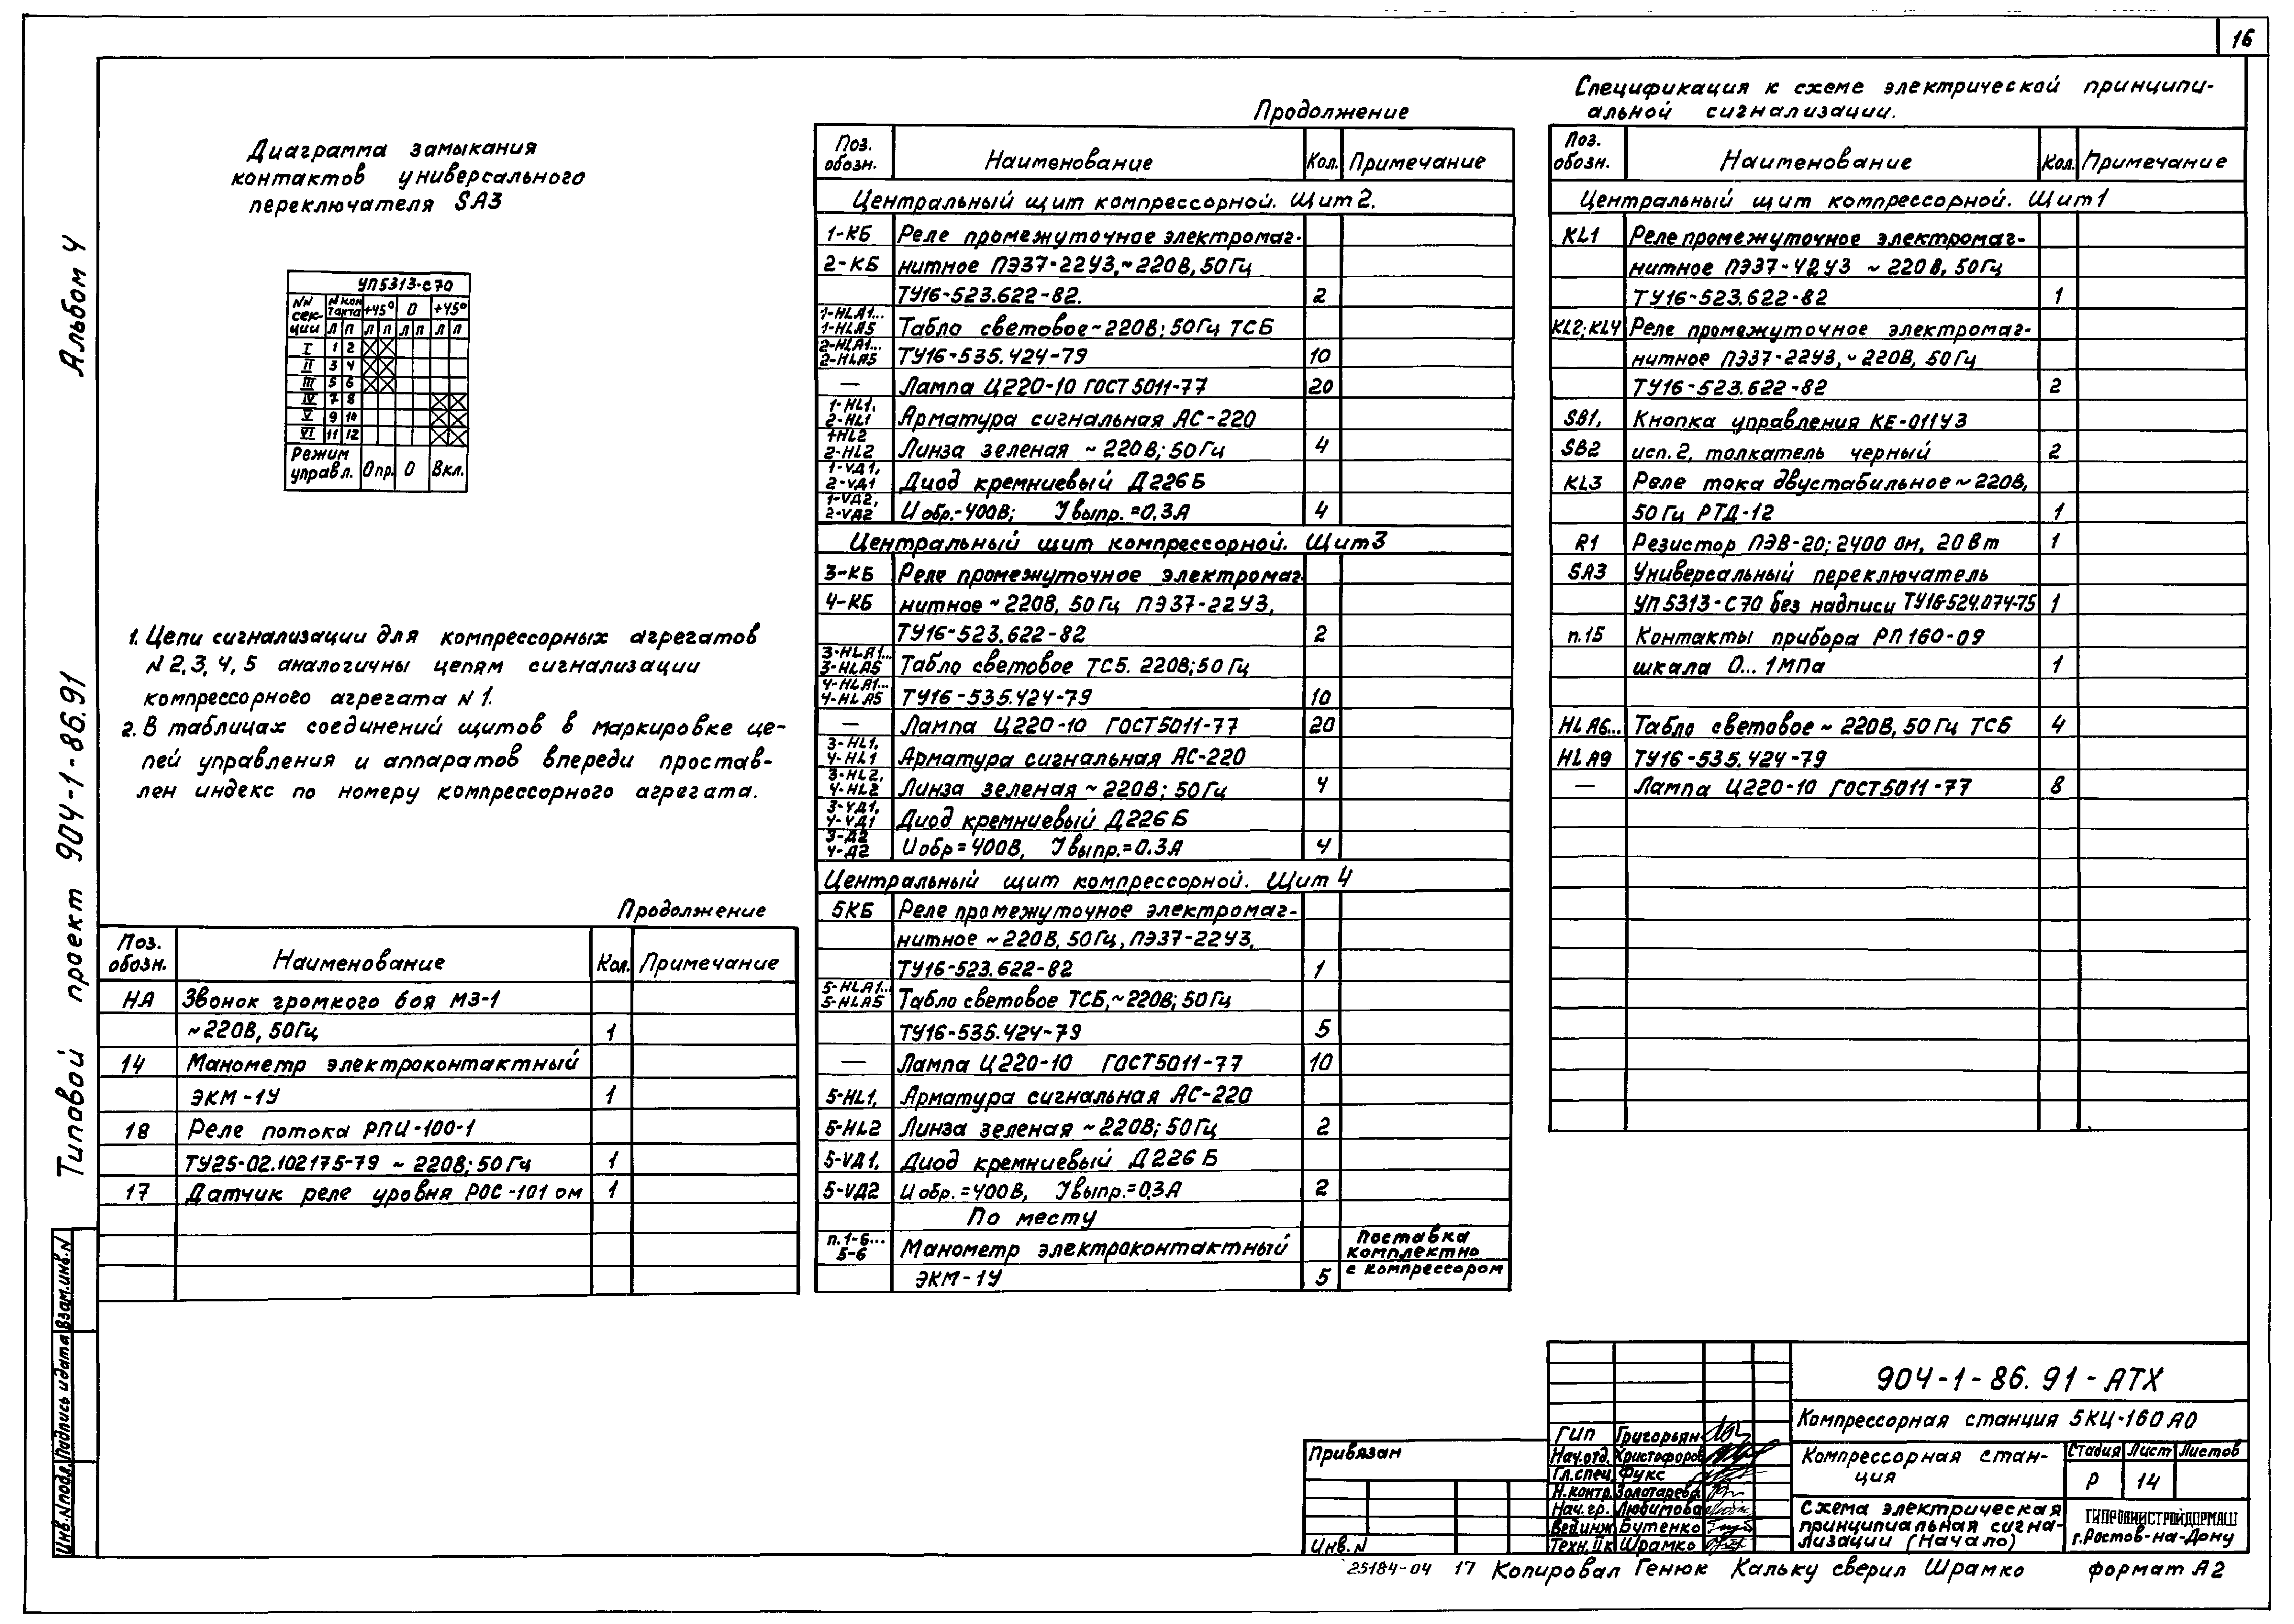 16
Альбом 4
Типовой проект 904-1-86.91
Диаграмма замыкания
контактов универсального
переключателя SA3
УП5313-С70
NN сек-ции | N контакта | +45° | 0 | +45°
Л П Л П Л П Л П
I 1 2
II 3 4
III 5 6
IV 7 8
V 9 10
VI 11 12
Режим управл. Опр. 0 Вкл.
1. Цепи сигнализации для компрессорных агрегатов
N 2,3,4,5 аналогичны цепям сигнализации
компрессорного агрегата N 1.
2. В таблицах соединений щитов в маркировке це-
пей управления и аппаратов впереди простав-
лен индекс по номеру компрессорного агрегата.
Продолжение
Поз. обозн. Наименование Кол. Примечание
НА Звонок громкого боя МЗ-1
~220В, 50Гц 1
14 Манометр электроконтактный
ЭКМ-1У 1
18 Реле потока РПИ-100-1
ТУ25-02.102175-79 ~ 220В; 50Гц 1
17 Датчик реле уровня РОС-101 ом 1
Продолжение
Поз. обозн. Наименование Кол. Примечание
Центральный щит компрессорной. Щит 2.
1-КБ Реле промежуточное электромаг-
2-КБ нитное ПЭ37-22У3,~220В, 50Гц
ТУ16-523.622-82. 2
1-HLA1... 1-HLA5 Табло световое ~220В; 50Гц ТСБ
2-HLA1... 2-HLA5 ТУ16-535.424-79 10
— Лампа Ц220-10 ГОСТ 5011-77 20
1-HL1, 2-HL1 Арматура сигнальная АС-220
1HL2 2-HL2 Линза зеленая ~ 220В; 50Гц 4
1-VД1, 2-VД1 Диод кремниевый Д226Б
1-VД2, 2-VД2 Uобр.-400В; Iвыпр.=0,3А 4
Центральный щит компрессорной. Щит3
3-КБ Реле промежуточное электромаг
4-КБ нитное ~220В, 50Гц ПЭ37-22У3,
ТУ16-523.622-82 2
3-HLA1... 3-HLA5 Табло световое ТСБ. 220В;50Гц
4-HLA1... 4-HLA5 ТУ16-535.424-79 10
— Лампа Ц220-10 ГОСТ5011-77 20
3-HL1, 4-HL1 Арматура сигнальная АС-220
3-HL2, 4-HL2 Линза зеленая ~ 220В; 50Гц 4
3-VД1, 4-VД1 Диод кремниевый Д226Б
3-Д2 4-Д2 Uобр=400В, Iвыпр.=0.3А 4
Центральный щит компрессорной. Щит 4
5КБ Реле промежуточное электромаг-
нитное ~220В, 50Гц, ПЭ37-22У3,
ТУ16-523.622-82 1
5-HLA1... 5-HLA5 Табло световое ТСБ,~220В; 50Гц
ТУ16-535.424-79 5
— Лампа Ц220-10 ГОСТ5011-77 10
5-HL1, Арматура сигнальная АС-220
5-HL2 Линза зеленая ~220В; 50Гц 2
5-VД1, Диод кремниевый Д226Б
5-VД2 Uобр.=400В, Iвыпр.=0,3А 2
По месту
п.1-6... 5-6 Манометр электроконтактный
ЭКМ-1У 5
Поставка комплектно с компрессором
Спецификация к схеме электрической принципи-
альной сигнализации.
Поз. обозн. Наименование Кол. Примечание
Центральный щит компрессорной. Щит1
KL1 Реле промежуточное электромаг-
нитное ПЭ37-42У3 ~ 220В, 50Гц
ТУ16-523.622-82 1
KL2; KL4 Реле промежуточное электромаг-
нитное ПЭ37-22У3, ~ 220В, 50Гц
ТУ16-523.622-82 2
SB1, Кнопка управления КЕ-011У3
SB2 исп.2, толкатель черный 2
KL3 Реле тока двустабильное ~ 220В,
50Гц РТД-12 1
R1 Резистор ПЭВ-20; 2400 Ом, 20Вт 1
SA3 Универсальный переключатель
УП5313-С70 без надписи ТУ16-524.074-75 1
п.15 Контакты прибора РП160-09
шкала 0...1МПа 1
HLA6... Табло световое ~ 220В, 50Гц ТСБ 4
HLA9 ТУ16-535.424-79
— Лампа Ц220-10 ГОСТ5011-77 8
904-1-86.91-АТХ
Компрессорная станция 5КЦ-160А0
Компрессорная стан-
ция
Стадия Лист Листов
Р 14
Схема электрическая
принципиальная сигна-
лизации (Начало)
ГИПРОНИИСТРОЙДОРМАШ
г.Ростов-на-Дону
ГИП Григорьян
Нач.отд. Христофоров
Гл.спец. Фукс
Н.контр. Золотарева
Нач.гр. Любимова
Вед.инж Бутенко
Техн.IIк Шрамко
Привязан
Инв.N
Инв.N подл. Подпись и дата Взам.инв.N
25184-04 17 Копировал Генюк Кальку сверил Шрамко формат А2